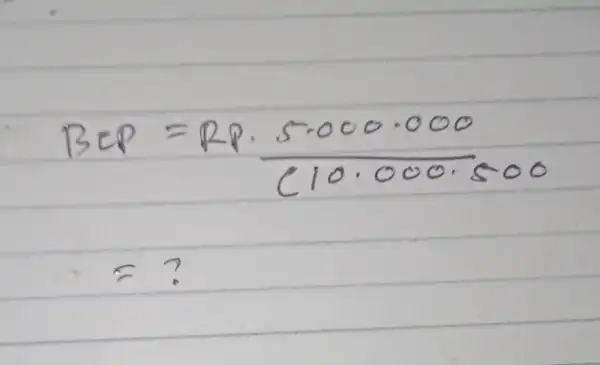 BEP = RP. 5.000.000
(10.000.500
= ?